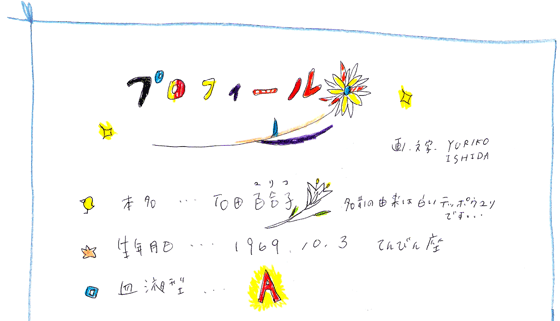 プロフィール
画・文字 YURIKO
ISHIDA
ゆりこ
本名 … 石田百合子 名前の由来は白いテッポウユリ
です…
生年月日 … 1969.10.3 てんびん座
血液型 … A